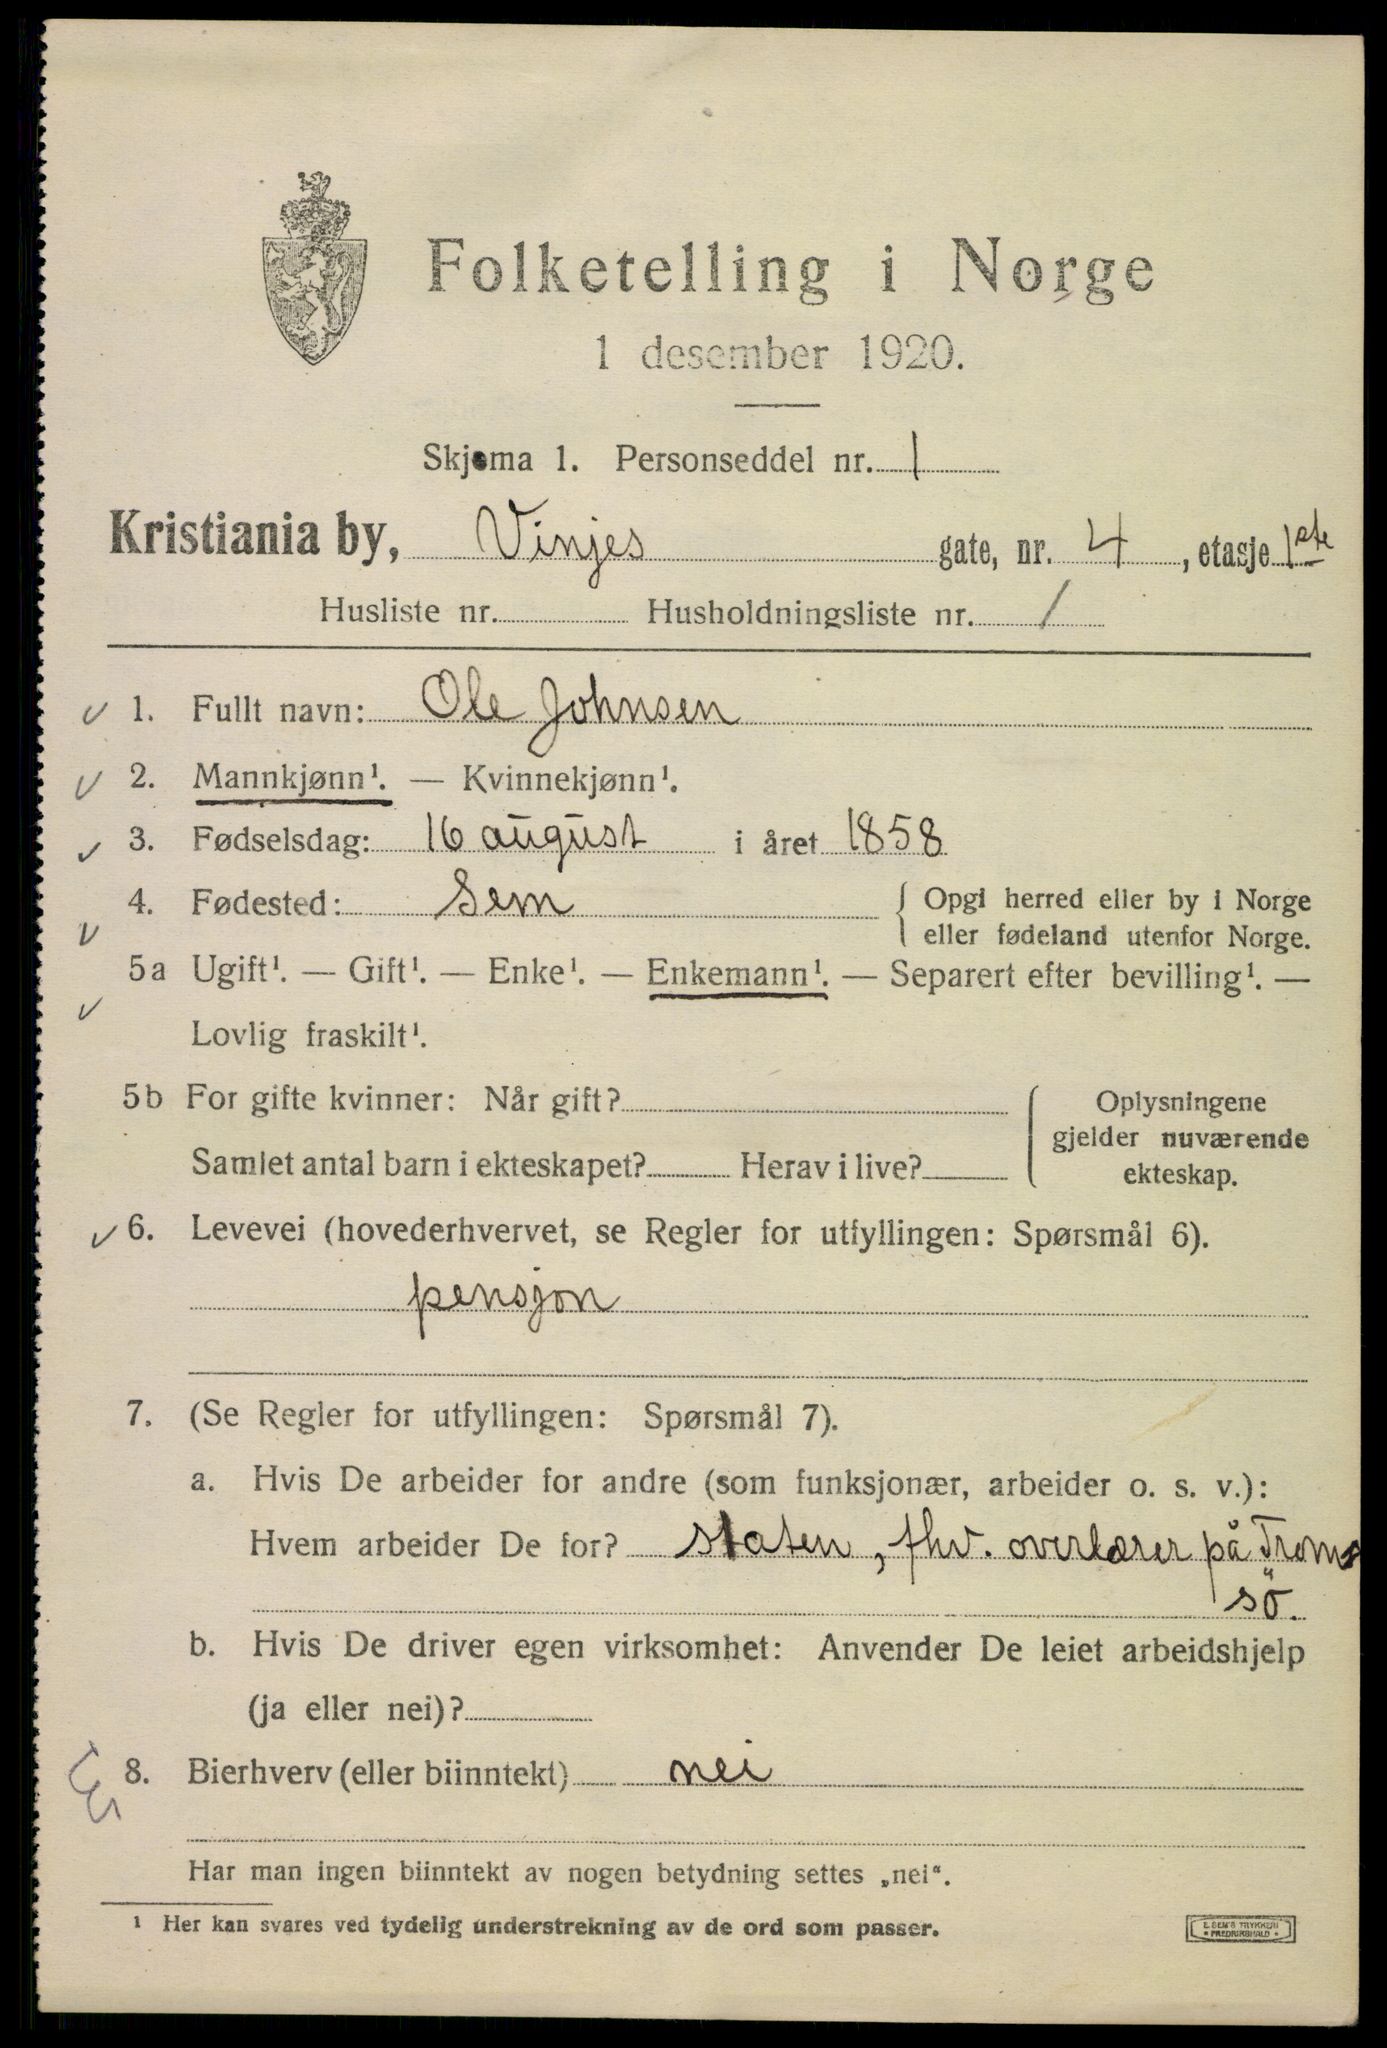 Folketelling i Norge
1 desember 1920.
Skjema 1. Personseddel nr. 1
Kristiania by, Vinjes gate, nr. 4, etasje 1ste
Husliste nr. Husholdningsliste nr. 1
1. Fullt navn: Ole Johnsen
2. Mannkjønn¹. — Kvinnekjønn¹.
3. Fødselsdag: 16 august i året 1858
4. Fødested: Sem { Opgi herred eller by i Norge
eller fødeland utenfor Norge.
5a Ugift¹. — Gift¹. — Enke¹. — Enkemann¹. — Separert efter bevilling¹. —
Lovlig fraskilt¹.
5b For gifte kvinner: Når gift? { Oplysningene
gjelder nuværende
Samlet antal barn i ekteskapet? Herav i live? ekteskap.
6. Levevei (hovederhvervet, se Regler for utfyllingen: Spørsmål 6).
pensjon
7. (Se Regler for utfyllingen: Spørsmål 7).
a. Hvis De arbeider for andre (som funksjonær, arbeider o. s. v.):
Hvem arbeider De for? staten, fhv. overlærer på Trom-
sö.
b. Hvis De driver egen virksomhet: Anvender De leiet arbeidshjelp
(ja eller nei)?
8. Bierhverv (eller biinntekt) nei
Har man ingen biinntekt av nogen betydning settes „nei“.
¹ Her kan svares ved tydelig understrekning av de ord som passer.
E. SEM'S TRYKKERI
* FREDRIKSHALD *